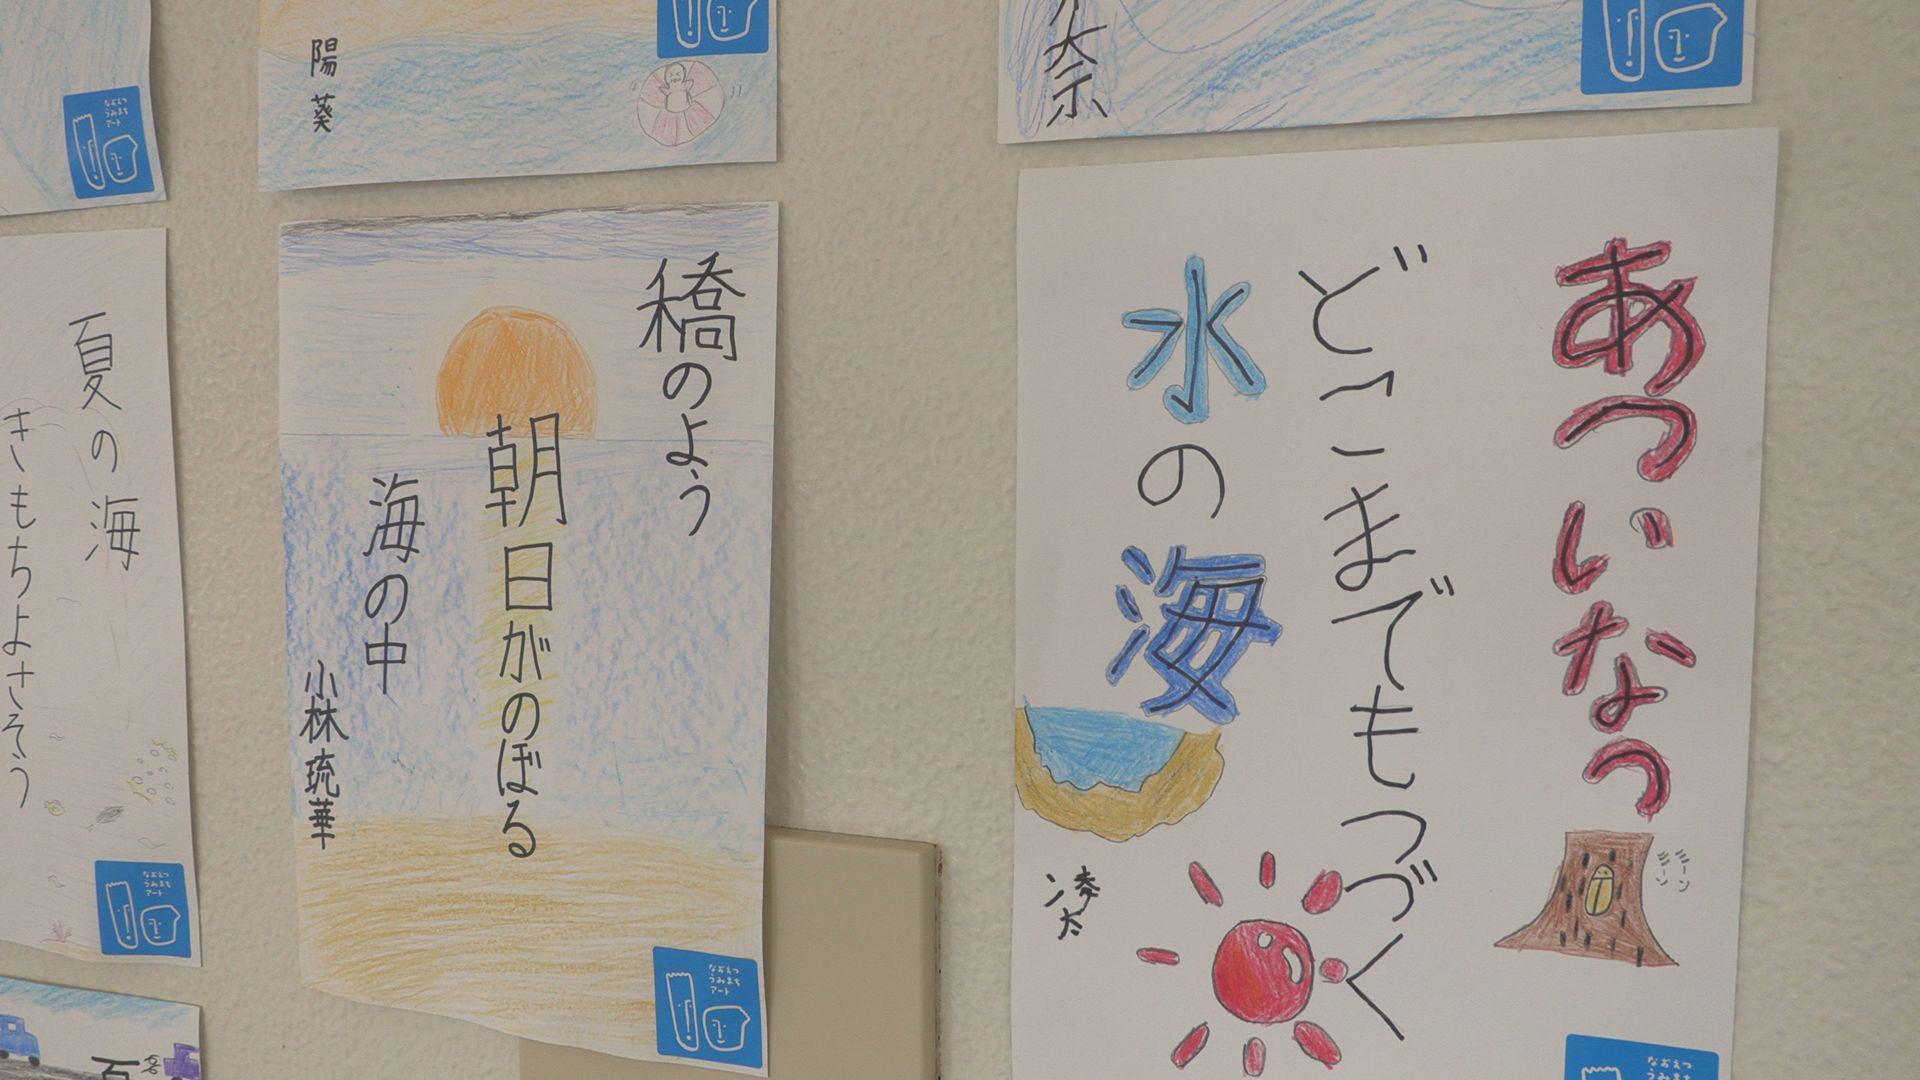 陽葵
なおえつ
うみまち
アート
夏の海
きもちよさそう
なおえつ
うみまち
アート
橋のよう
朝日がのぼる
海の中
小林琉華
なおえつ
うみまち
アート
あついなつ
どこまでもつづく
水の海
湊太
ミーン
ミーン
なおえつ